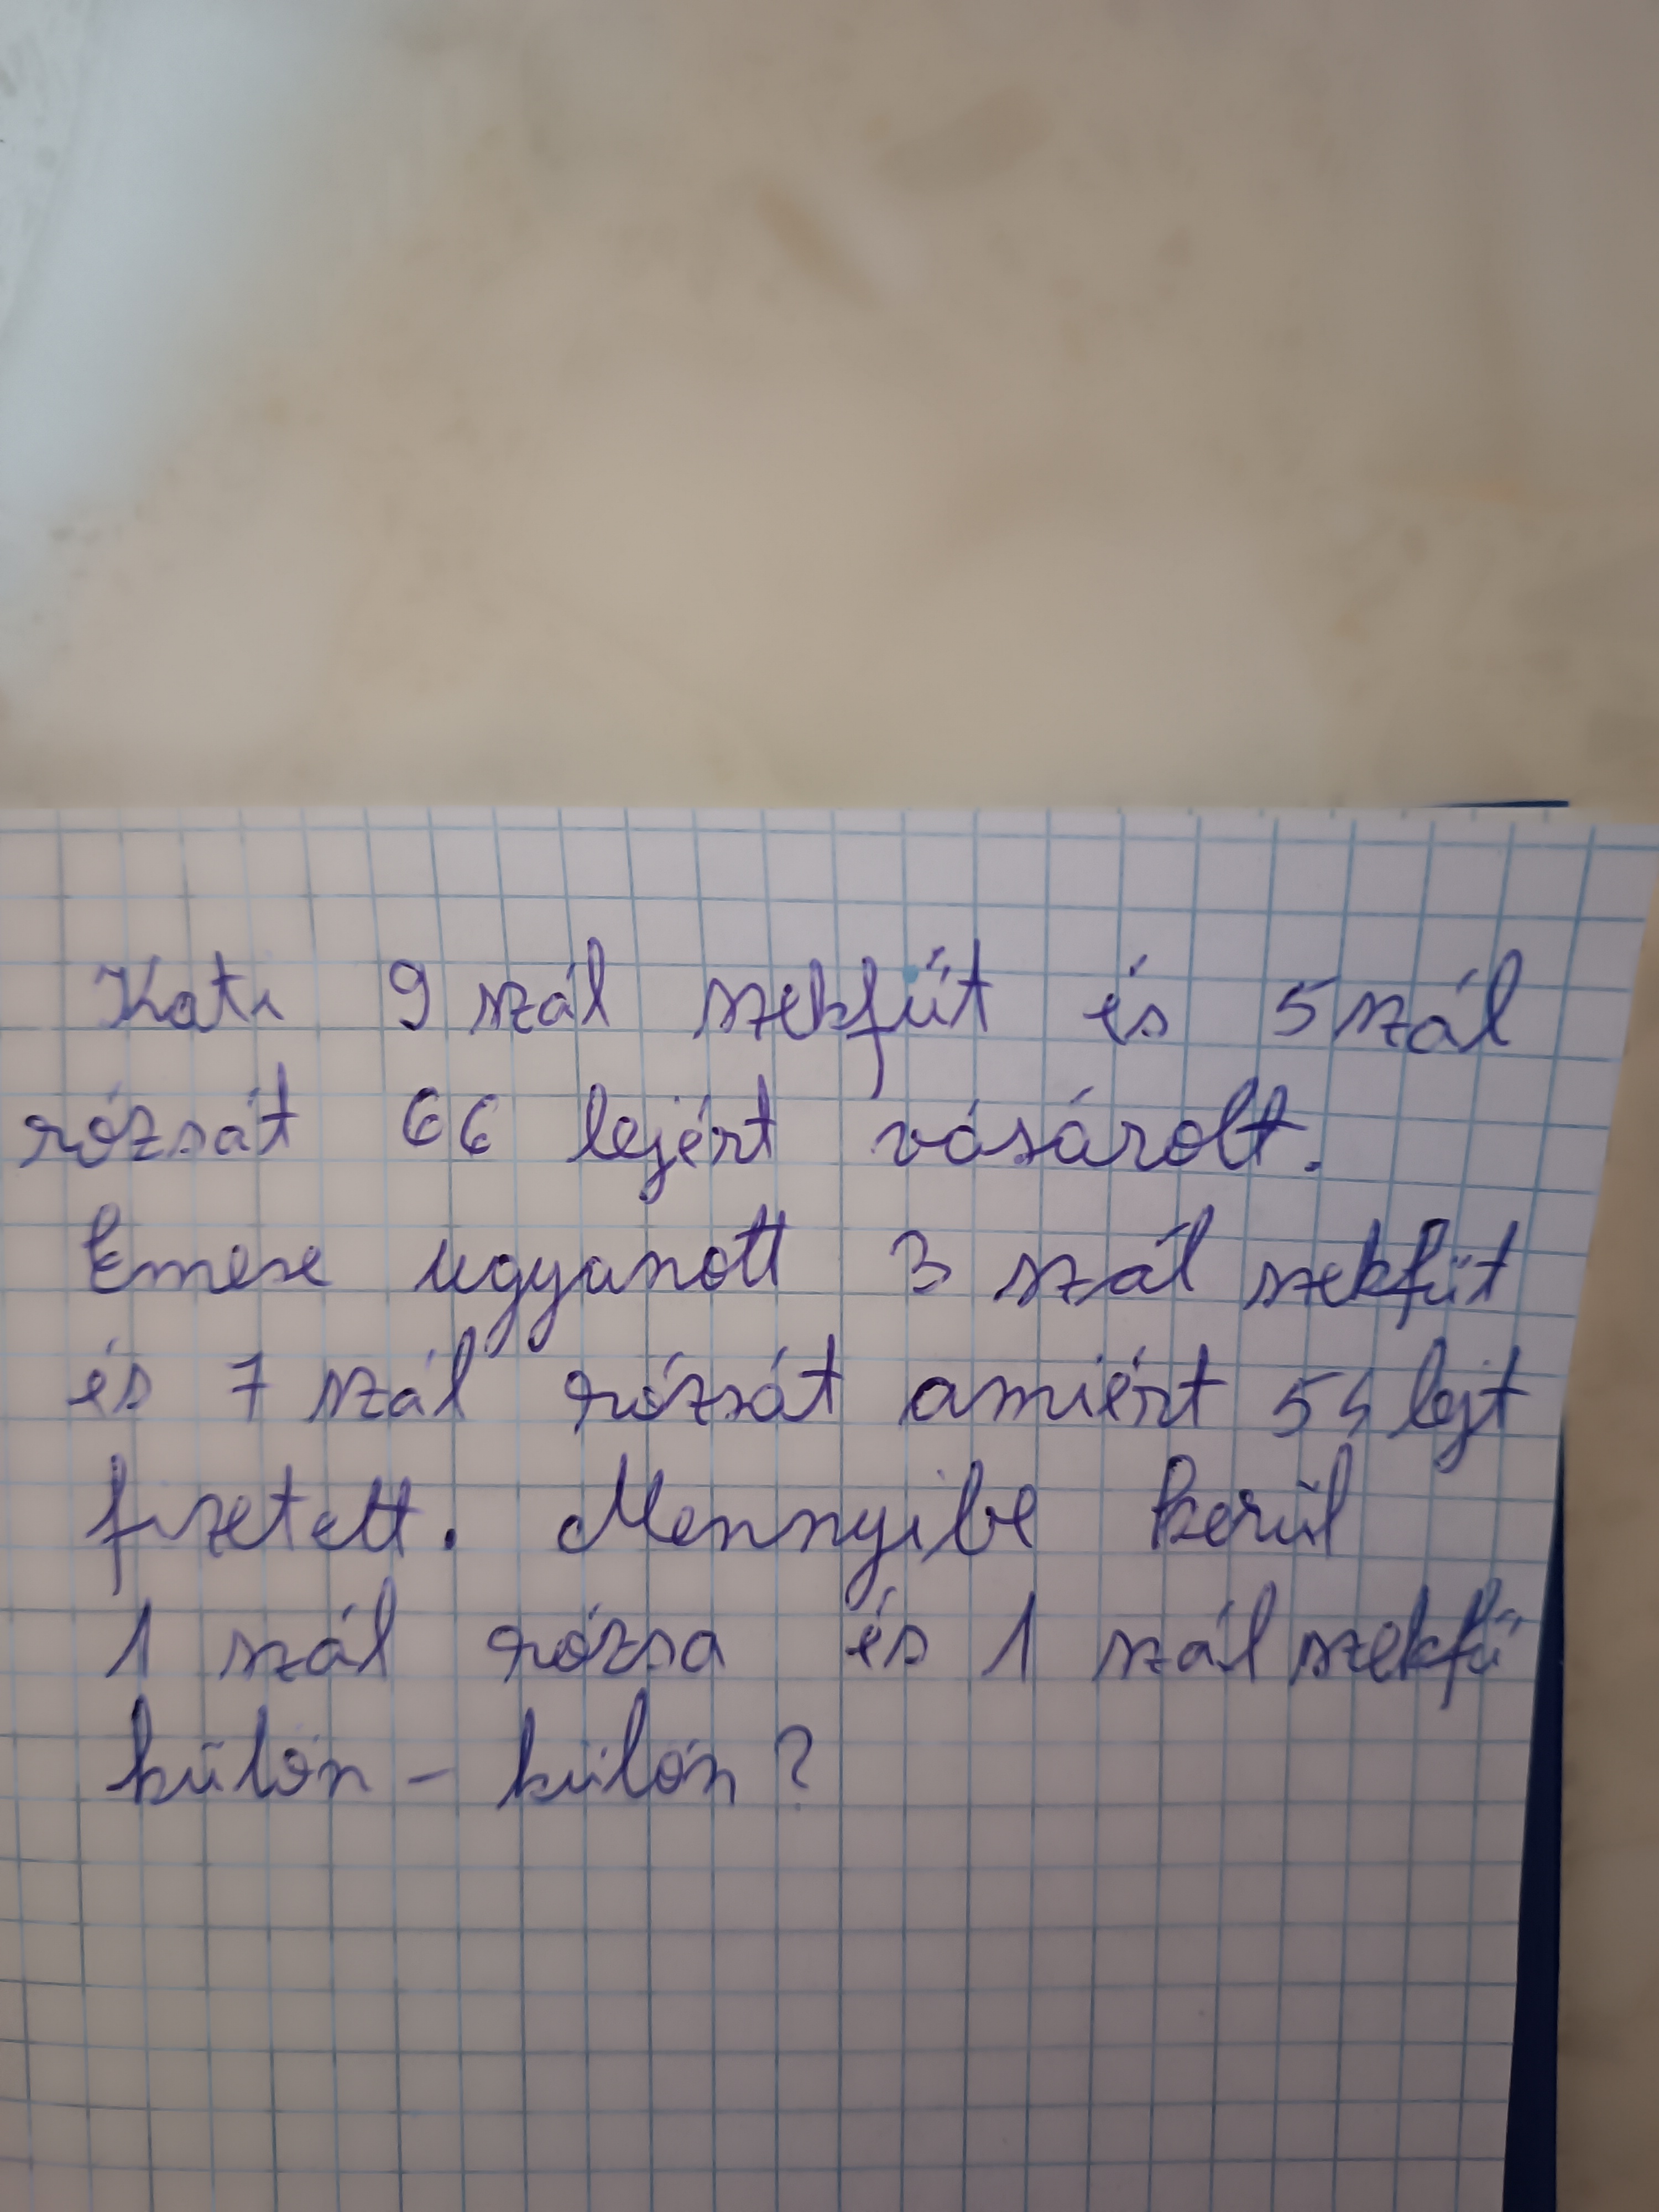 Kati 9 szál szekfűt és 5 szál
rózsát 66 lejért vásárolt.
Emese ugyanott 3 szál szekfűt
és 7 szál rózsát amiért 54 lejt
fizetett. Mennyibe kerül
1 szál rózsa és 1 szál szekfű
külön - külön ?